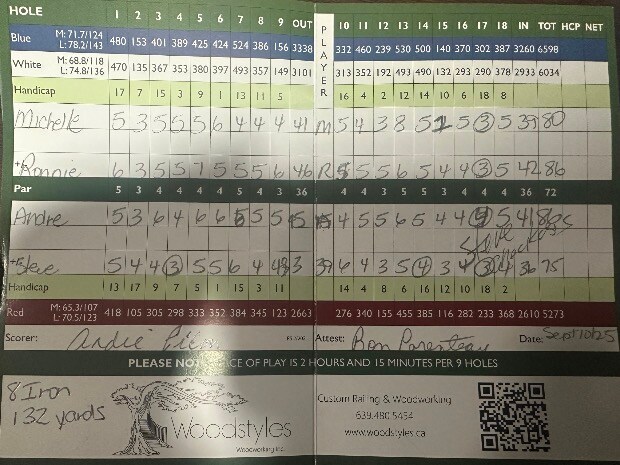 HOLE 1 2 3 4 5 6 7 8 9 OUT PLAYER 10 11 12 13 14 15 16 17 18 IN TOT HCP NET
Blue M: 71.7/124 L: 78.2/143 480 153 401 389 425 424 524 386 156 3338 332 460 239 530 500 140 370 302 387 3260 6598
White M: 68.8/118 L: 74.8/136 470 135 367 353 380 397 493 357 149 3101 313 352 192 493 490 132 293 290 378 2933 6034
Handicap 17 7 15 3 9 1 13 11 5 16 4 2 12 14 10 6 18 8
Michelle 5 3 5 5 5 6 4 4 4 41 M 5 4 3 8 5 2 5 3 5 39 80
Ronnie 6 3 5 5 7 5 5 5 6 46 R 5 5 5 6 5 4 4 3 5 42 86
Par 5 3 4 4 4 4 5 4 3 36 4 4 3 5 5 3 4 4 4 36 72
Andre 5 3 6 4 6 6 5 5 5 45 4 5 5 6 5 4 4 5 41 86
Steve 5 4 4 3 5 5 6 4 3 39 6 4 3 5 4 3 4 3 4 36 75
Handicap 13 17 9 7 5 1 15 3 11 14 4 8 6 16 12 10 18 2
Red M: 65.3/107 L: 70.5/123 418 105 305 298 333 352 384 345 123 2663 276 340 155 455 385 116 282 233 368 2610 5273
Scorer: Attest: Ron Date: Sept 10/25
PLEASE NOTE PACE OF PLAY IS 2 HOURS AND 15 MINUTES PER 9 HOLES
8 Iron
132 yards
Woodstyles
Woodworking Inc.
Custom Railing & Woodworking
639.480.5454
www.woodstyles.ca